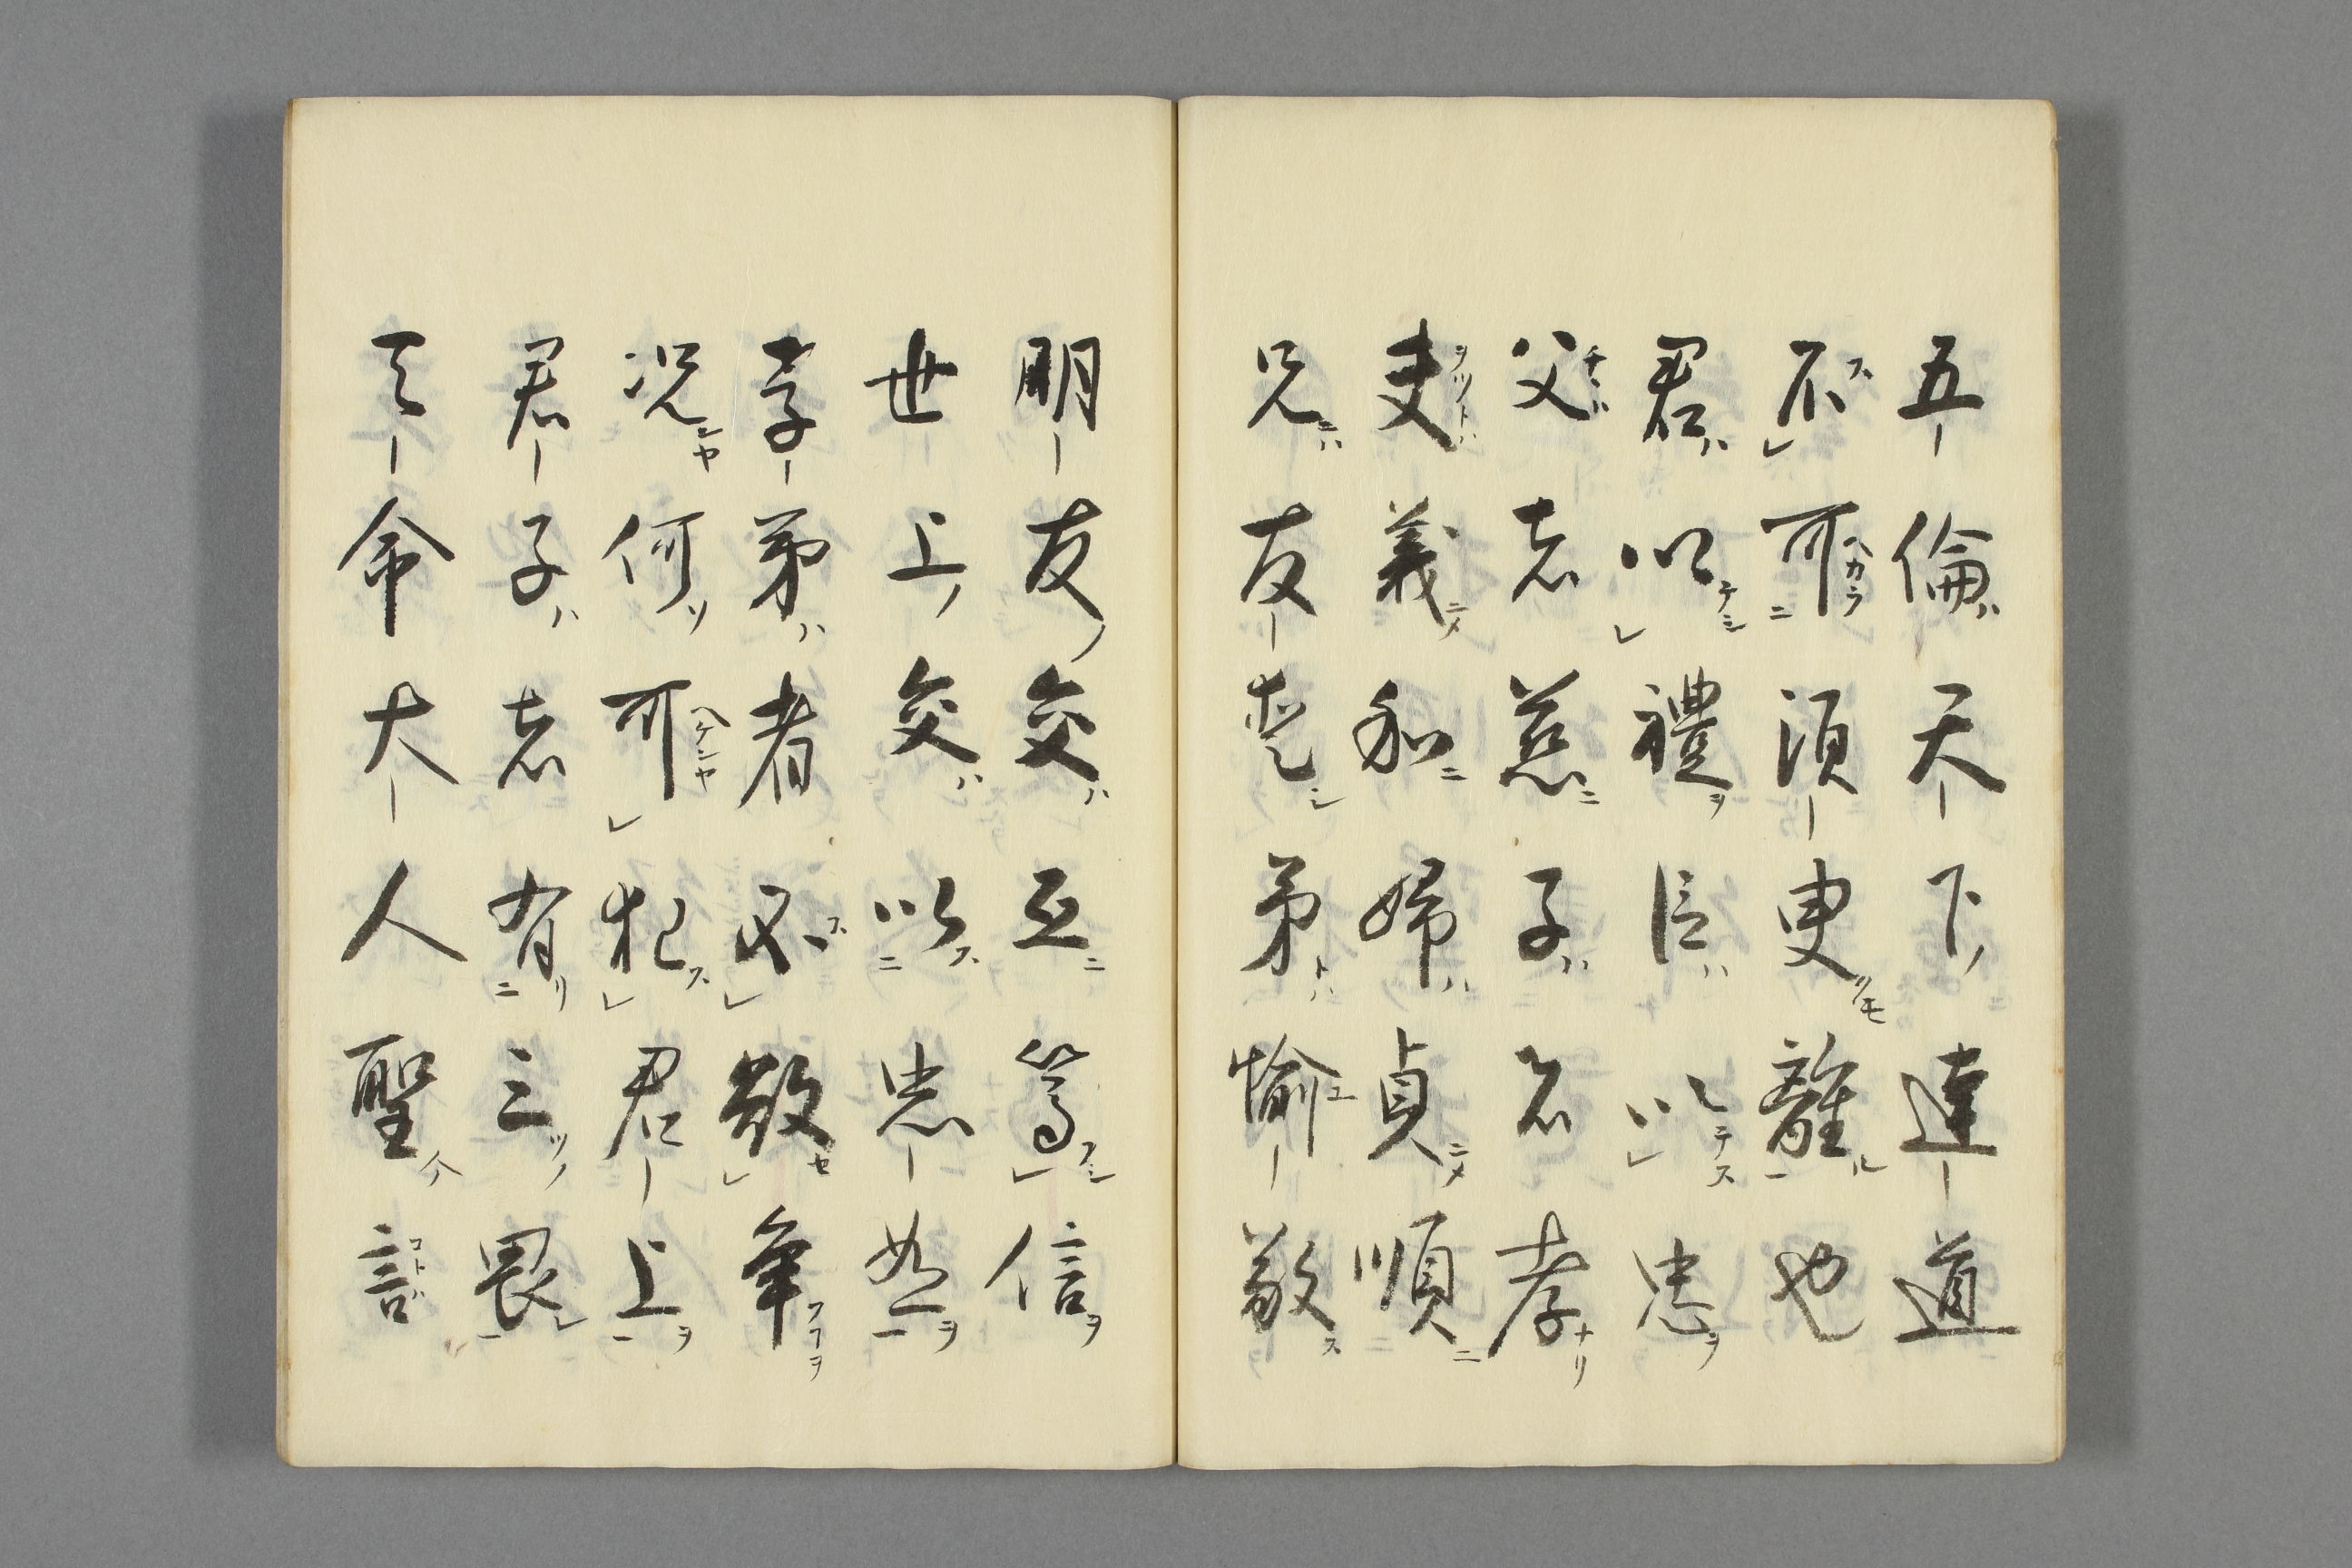 五倫天下達道
不可須臾離也
君以禮臣以忠
父者慈子者孝
夫義和婦貞順
兄友弟愉敬
朋友交互篤信
世上交以忠恕
孝弟者不敢争
況何可犯君上
君子者有三畏
天命大人聖言